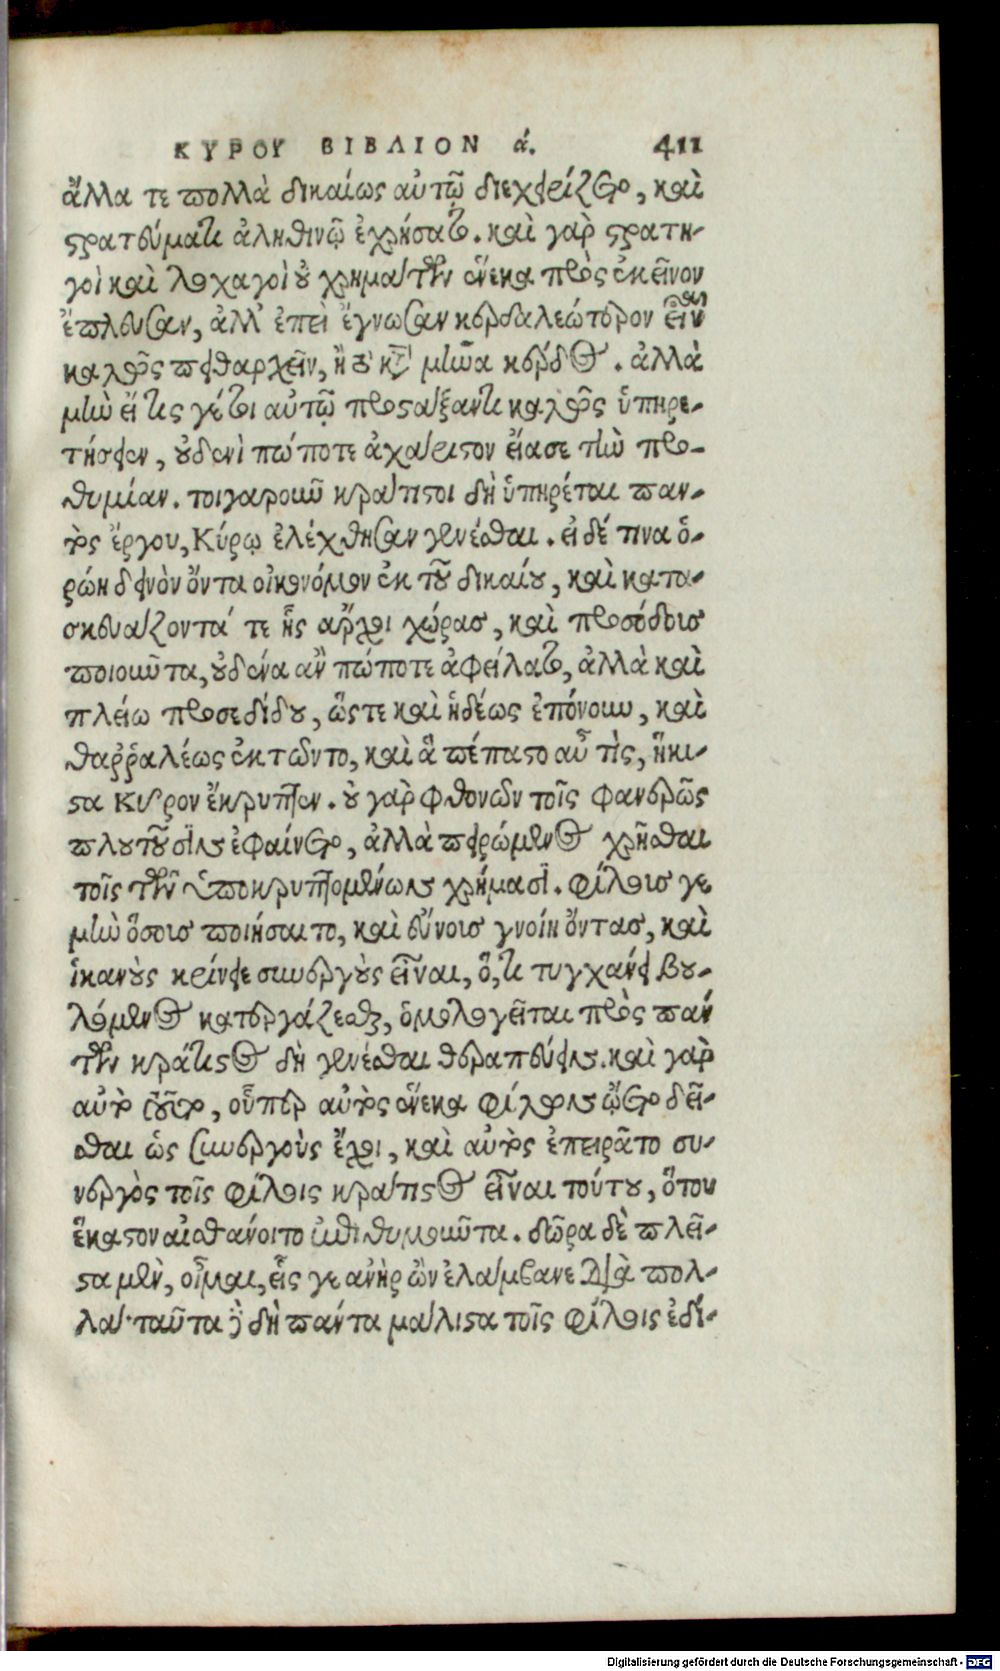 ΚΥΡΟΥ ΒΙΒΛΙΟΝ ά. 411
ἄλλα τε πολλὰ δικαίως αὐτῷ διεχειρίζετο, καὶ
στρατεύματι ἀληθινῷ ἐχρήσατο. καὶ γὰρ στρατη-
γοὶ καὶ λοχαγοὶ οὐ χρημάτων ἕνεκα πρὸς ἐκεῖνον
ἔπλευσαν, ἀλλ' ἐπεὶ ἔγνωσαν κερδαλεώτερον εἶναι
καλῶς πειθαρχεῖν, ἢ τὸ κτ μῆνα κέρδος. ἀλλὰ
μὴν εἴ τις γέ τοι αὐτῷ προστάξαντι καλῶς ὑπηρε-
τήσειεν, οὐδενὶ πώποτε ἀχάριστον εἴασε τὴν προ-
θυμίαν. τοιγαροῦν κράτιστοι δὴ ὑπηρέται παν-
τὸς ἔργου, Κύρῳ ἐλέχθησαν γενέσθαι. εἰ δέ τινα ὁ-
ρῴη δεινὸν ὄντα οἰκονόμον ἐκ τοῦ δικαίου, καὶ κατα-
σκευάζοντά τε ἧς ἄρχοι χώρας, καὶ προσόδοις
ποιοῦντα, οὐδένα ἂν πώποτε ἀφείλατο, ἀλλὰ καὶ
πλείω προσεδίδου, ὥστε καὶ ἡδέως ἐπόνουν, καὶ
θαῤῥαλέως ἐκτῶντο, καὶ ἃ πέπατο αὖ τὶς, ἥκι-
στα Κῦρον ἔκρυπτεν. οὐ γὰρ φθονῶν τοῖς φανερῶς
πλουτοῦσιν ἐφαίνετο, ἀλλὰ πειρώμενος χρῆσθαι
τοῖς τῶν ὑποκρυπτομένων χρήμασι. φίλοις γε
μὴν ὅσοις ποιήσαιτο, καὶ εὔνοις γνοίη ὄντας, καὶ
ἱκανοὺς κρίνειε συνεργοὺς εἶναι, ὅ,τι τυγχάνει βου-
λόμενος κατεργάζεσθαι, ὁμολογεῖται πρὸς πάν
των κράτιστος δὴ γενέσθαι θεραπεύειν. καὶ γὰρ
αὐτὸ τοῦτο, οὗπερ αὐτὸς ἕνεκα φίλων ᾤετο δεῖ-
σθαι ὡς συνεργοὺς ἔχοι, καὶ αὐτὸς ἐπειρᾶτο συ-
νεργὸς τοῖς φίλοις κράτιστος εἶναι τούτου, ὅτου
ἕκαστον αἰσθάνοιτο ἐπιθυμοῦντα. δῶρα δὲ πλεῖ-
στα μὲν, οἶμαι, εἷς γε ἀνὴρ ὢν ἐλάμβανε διὰ πολ-
λά· ταῦτα δὲ δὴ πάντα μάλιστα τοῖς φίλοις ἐδί-
Digitalisierung gefördert durch die Deutsche Forschungsgemeinschaft - DFG